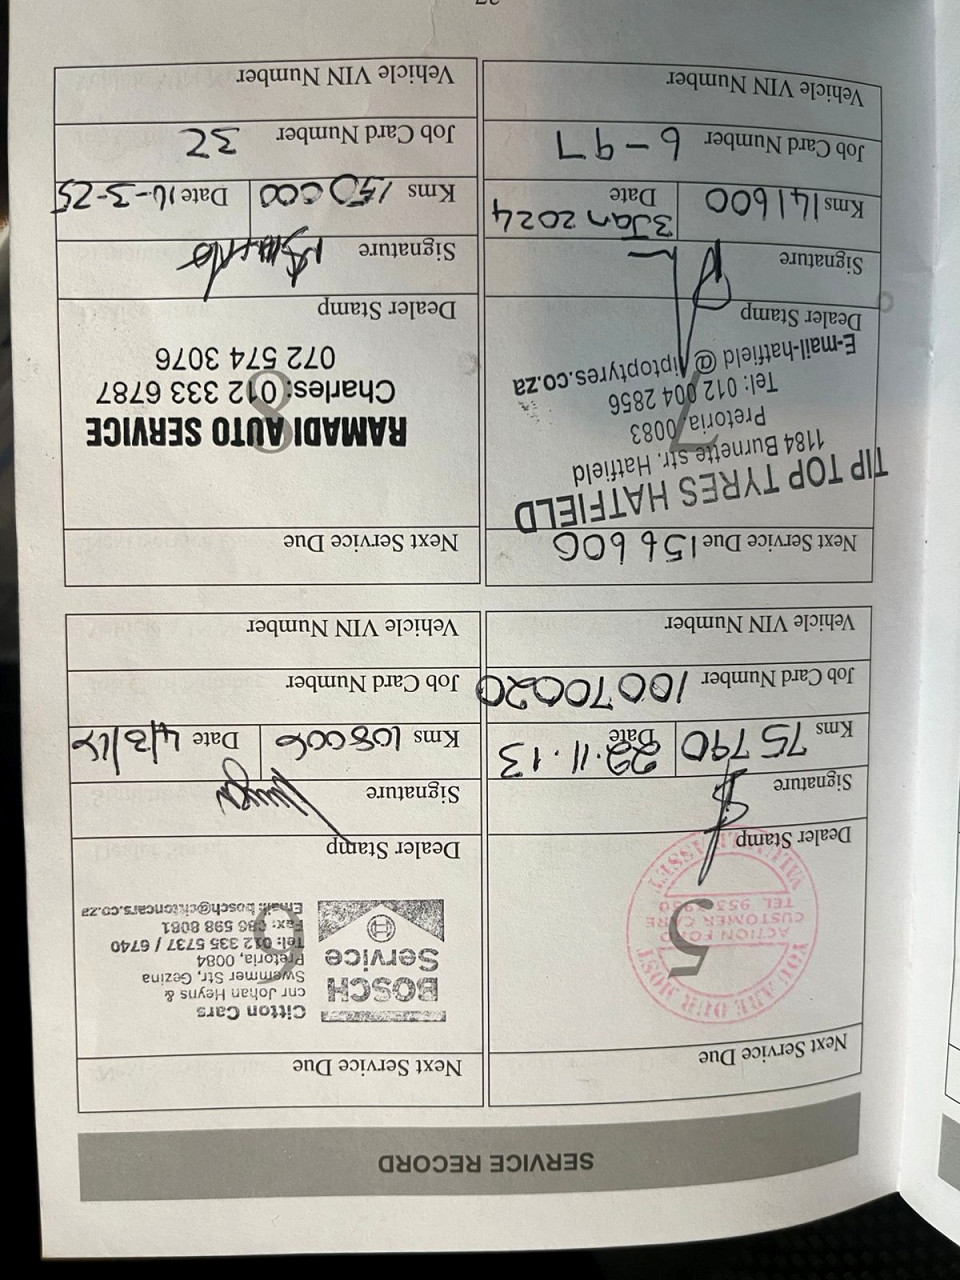 SERVICE RECORD
Next Service Due
YOU ARE OUR MOST
ACTION FORD
CUSTOMER CARE
TEL 953
VALUABLE ASSET
5
Dealer Stamp
Signature
Kms 75790
Date 22.11.13
Job Card Number 10070020
Vehicle VIN Number
Next Service Due
BOSCH
Service
Citton Cars
cnr Johan Heyns &
Swemmer Str, Gezina
Pretoria, 0084
Tel: 012 335 5737 / 6740
Fax: 086 598 8081
Email: bosch@cittoncars.co.za
6
Dealer Stamp
Signature
Kms 108006
Date
Job Card Number
Vehicle VIN Number
Next Service Due 156600
TIP TOP TYRES HATFIELD
1184 Burnette str. Hatfield
Pretoria, 0083
Tel: 012 004 2856
E-mail-hatfield @ tiptoptyres.co.za
7
Dealer Stamp
Signature
Kms 141600
Date 3 Jan 2024
Job Card Number 6-97
Vehicle VIN Number
Next Service Due
RAMADI AUTO SERVICE
Charles: 012 333 6787
072 574 3076
8
Dealer Stamp
Signature
Kms 150 000
Date 16-3-25
Job Card Number 32
Vehicle VIN Number